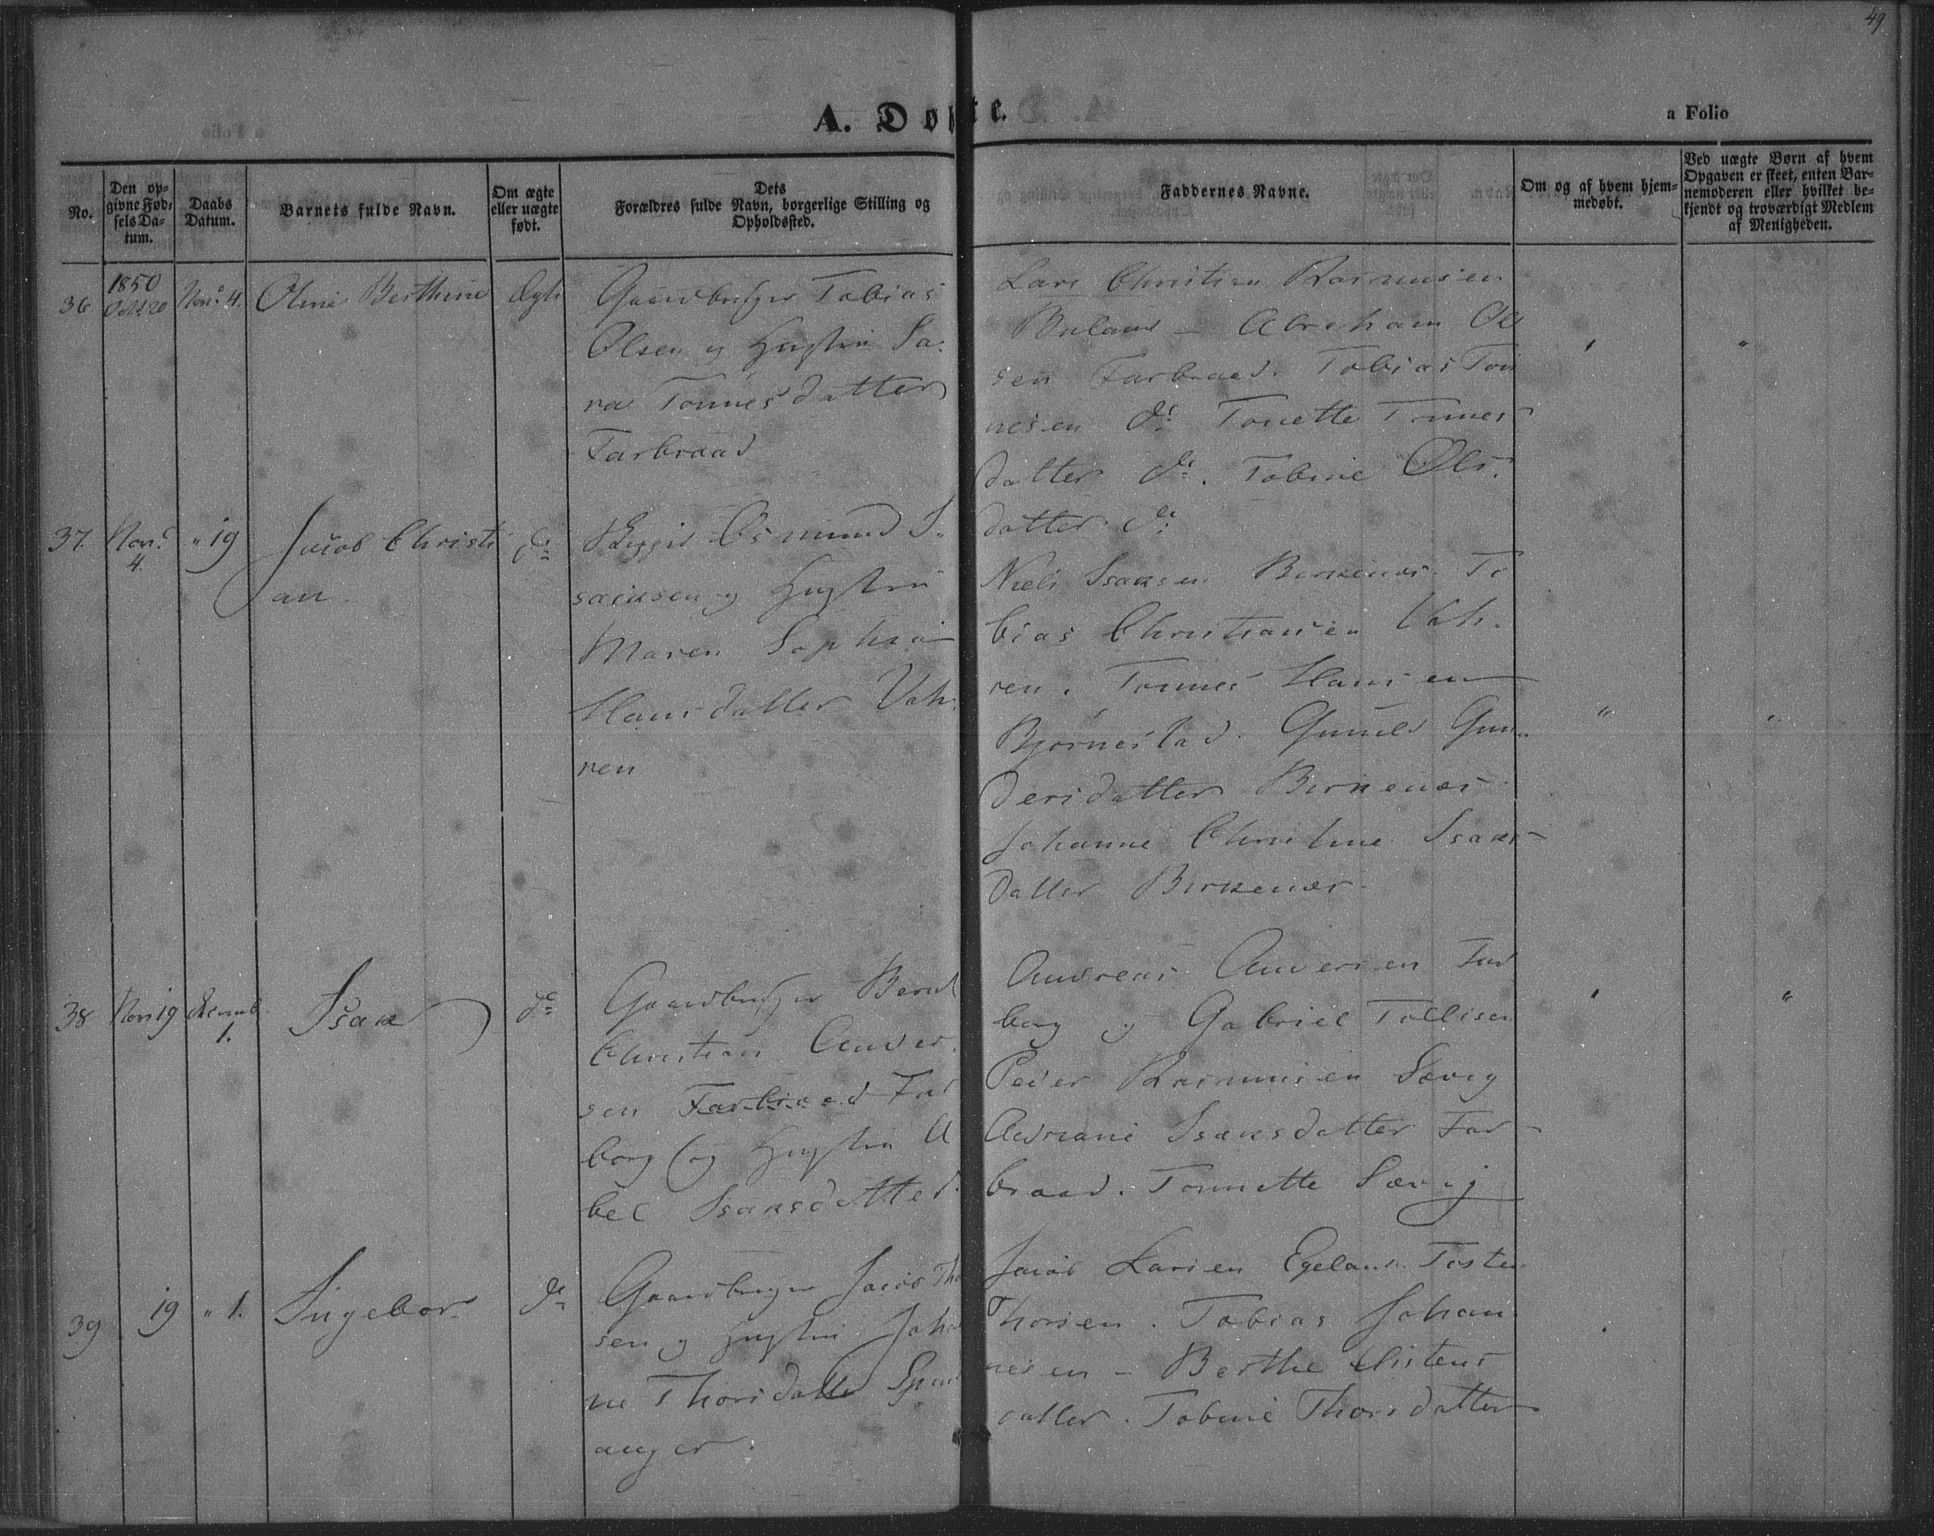 49
A. Døbte.
a Folio
No.
Den op-
givne Fød-
sels Da-
tum.
Daabs
Datum.
Barnets fulde Navn.
Om ægte
eller uægte
født.
Dets
Forældres fulde Navn, borgerlige Stilling og
Opholdssted.
Faddernes Navne.
Om og af hvem hjem-
medøbt.
Ved uægte Børn af hvem
Opgaven er skeet, enten Bar-
nemoderen eller hvilket be-
kjendt og troværdigt Medlem
af Menigheden.
1850
36 Octb 20 Novb 4. Oline Berthine Ægte
Gaardbruger Tobias
Olsen og Hustru Sa-
ra Tønnesdatter
Farbraad
Lars Christian Rasmusen
Buland - Abraham Ol
sen Farbraad. Tobias Tøn
nesen do. Tonette Tønnes
datter do. Tobine Ols.
datter do
37. Novb 4. " 19 Jacob Christi
an do
Osmund I.
saksen og Hustru
Maren Sophia
Hansdatter Vat.
ren
Niels Isaksen Birkenes. To
bias Christiansen Vat.
ren. Tønnes Hansen
Bjørnestad. Gunild Gun.
dersdatter Birkenes
Johanne Christine Isaks
datter Birkenes.
38 Nov 19 Decemb.
1. Isak do
Gaardbruger Bernt
Christian Ander.
sen Farbraad Far
borg og Hustru A
bel Isaksdatter.
Andreas Andersen Far
borg og Gabriel Tollisen
Peder Rasmusen Sævig
Adriane Isaksdatter Far
braad. Tonnette Sævig
39 19 " 1. Ingebor do
Gaardbruger Jacob Tho
sen og Hustru Joha
ne Thorsdatter Span
anger.
Jacob Larsen Egeland Toste
Thorsen. Tobias Johan
nesen - Berthe Ostens
datter. Tobine Thorsdatter